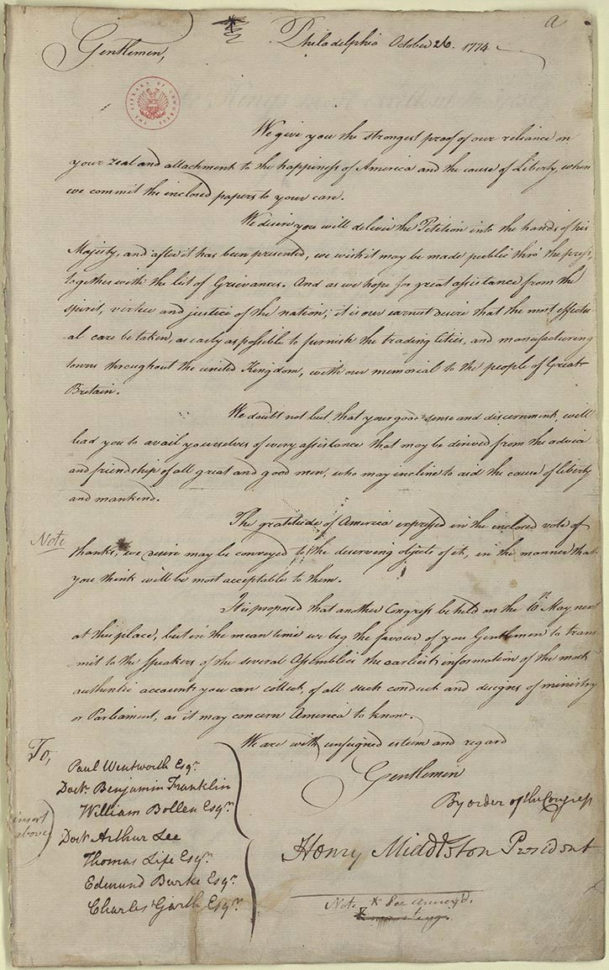 a
Philadelphia October 26. 1774
Gentlemen,
THE LIBRARY OF CONGRESS
We give you the strongest proof of our reliance on
your zeal and attachment to the happiness of America and the cause of Liberty, when
we commit the inclosed papers to your care.
We desire you will deliver the Petition into the hands of his
Majesty, and after it has been presented, we wish it may be made public thro' the press,
together with the list of Grievances. And as we hope for great assistance from the
spirit, virtue and justice of the nation, it is our earnest desire that the most effectu
al care be taken, as early as possible to furnish the trading Cities, and manufacturing
towns throughout the united Kingdom, with our memorial to the people of Great
Britain.
We doubt not but that your good sense and discernment, will
lead you to avail yourselves of every assistance that may be derived from the advice
and friendship of all great and good men, who may incline to aid the cause of liberty
and mankind.
The gratitude of America expressed in the inclosed vote of
Note
thanks, we desire may be conveyed to the deserving objects of it, in the manner that
you think will be most acceptable to them.
It is proposed that another Congress be held on the 10th May next
at this place, but in the mean time we beg the favour of you Gentlemen to trans
mit to the Speakers of the several Assemblies the earliest information of the most
authentic accounts you can collect, of all such conduct and designs of ministry
or Parliament, as it may concern America to know.
We are with unfeigned esteem and regard
Gentlemen
By order of the Congress
Henry Middleton President
To,
Paul Wentworth Esqr.
Doctr. Benjamin Franklin
William Bollen Esqr.
insert above
Doctr Arthur Lee
Thomas Life Esqr.
Edmund Burke Esqr.
Charles Garth Esqr.
Note